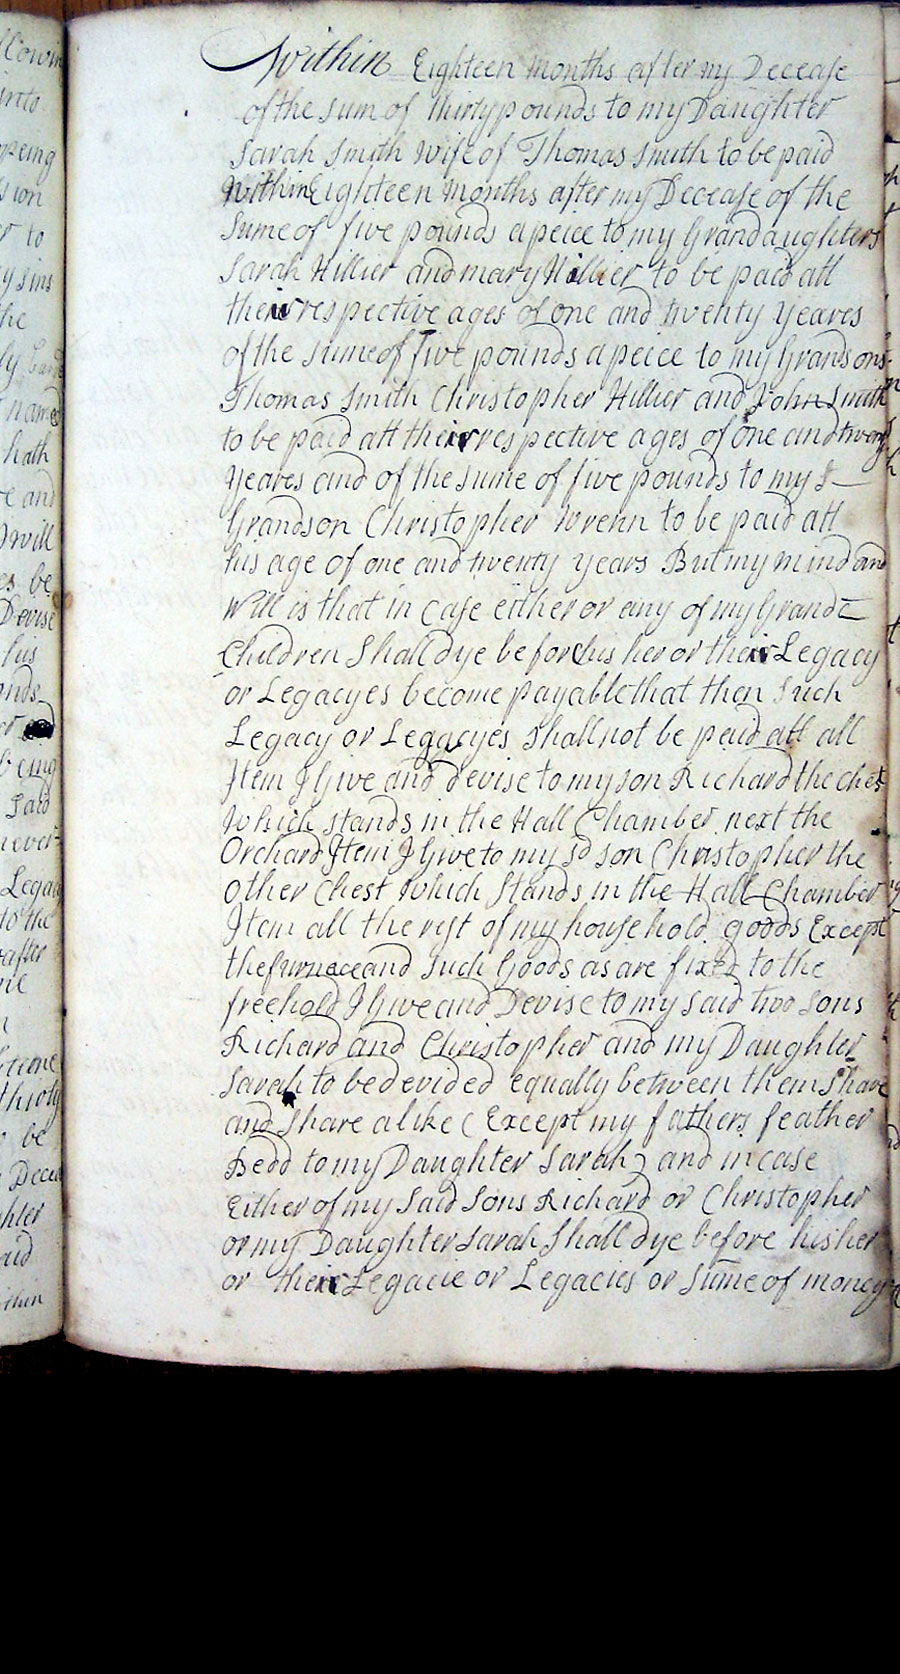 Within Eighteen Months after my Decease
of the sum of Thirty pounds to my Daughter
Sarah Smith Wife of Thomas Smith to be paid
Within Eighteen Months after my Decease of the
Sume of five pounds apeice to my Grandaughters
Sarah Hillier and mary Hillier to be paid att
their respective ages of one and twenty yeares
of the Sume of five pounds apeice to my Grandsons
Thomas Smith Christopher Hillier and John Smith
to be paid att their respective ages of one and twenty
yeares and of the sume of five pounds to my
Grandson Christopher Wrenn to be paid att
his age of one and twenty years But my mind and
Will is that in Case either or any of my Grand=
Children Shall dye before his her or their Legacy
or Legacyes become payable that then Such
Legacy or Legacyes Shall not be paid att all
Item I Give and devise to my son Richard the chest
Which stands in the Hall Chamber next the
Orchard Item I Give to my sd son Christopher the
Other Chest Which Stands in the Hall Chamber
Item all the rest of my household goods Except
the furnace and Such Goods as are fixed to the
freehold I Give and Devise to my Said two Sons
Richard and Christopher and my Daughter
Sarah to be devided equally between them Share
and Share alike (Except my fathers feather
Bedd to my Daughter Sarah) and in case
Either of my Said Sons Richard or Christopher
or my Daughter Sarah Shall dye before his her
or their Legacie or Legacies or Sume of money